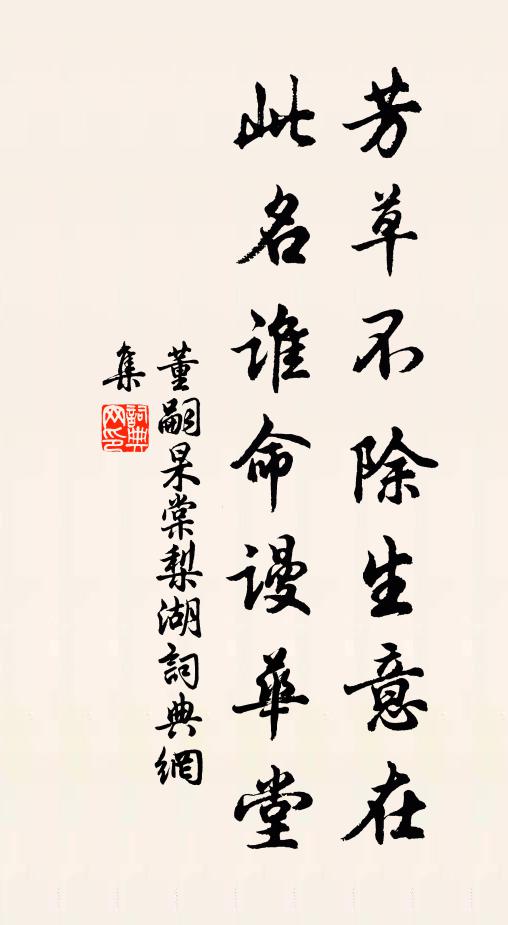 芳草不除生意在
此名谁命谩华堂
董嗣杲棠梨湖詞典網
集
詞典网印